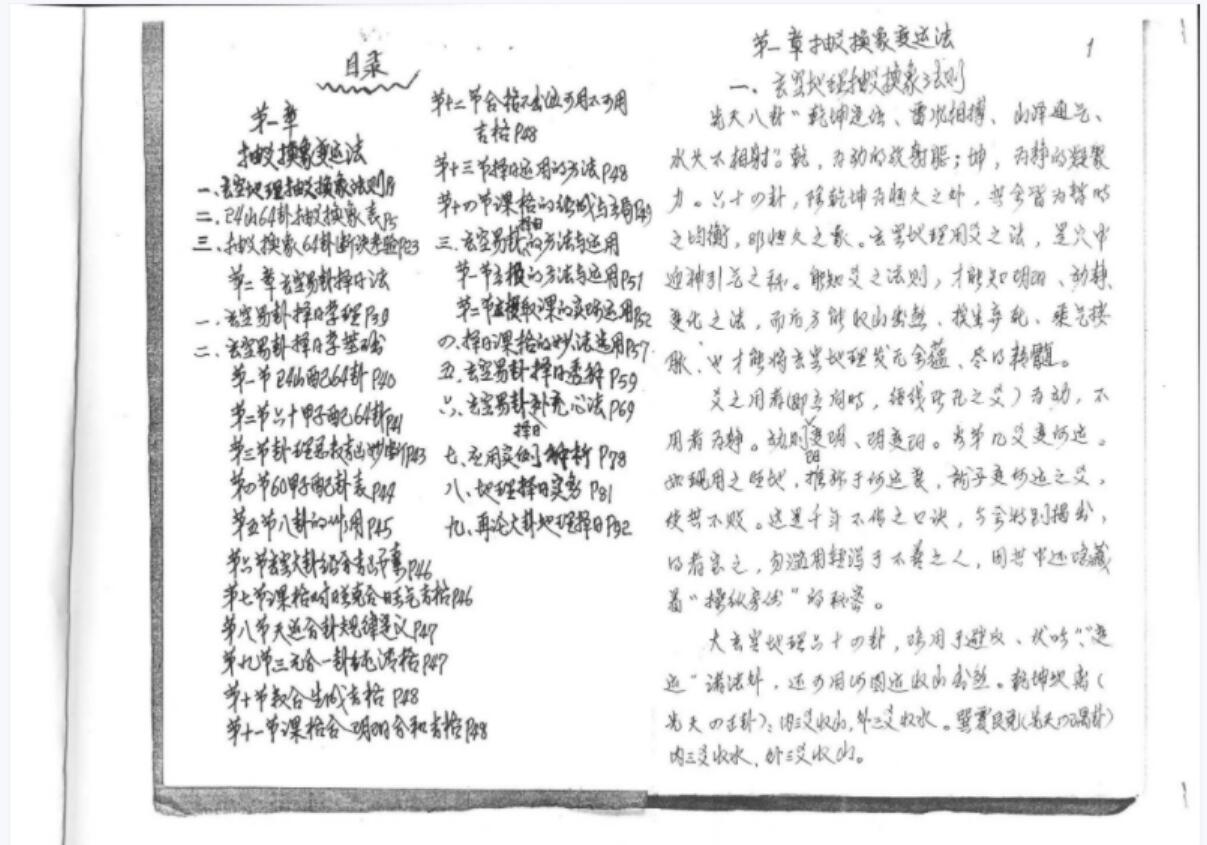 目录
第一章
抽爻换象变运法
一、玄空地理抽爻换象法则P1
二、24山64卦抽爻换象表P5
三、抽爻换象64卦断决考验P23
第二章玄空易卦择日法
一、玄空易卦择日学理P39
二、玄空易卦择日学基础
第一节24山配64卦P40
第二节六十甲子配64卦P41
第三节卦理星数玄妙断P43
第四节60甲子配卦表P44
第五节八卦的作用P45
第六节玄空大卦 P46
第七节课格 合旺气吉格P46
第八节天运合卦规律定义P47
第九节三元合一卦纯清格P47
第十节数合生成吉格P48
第十一节课格合阴阳合和吉格P48
第十二节合格不出位可用不可用
吉格P48
第十三节择日运用的方法P48
第十四节课格的组成与布局P49
三、玄空易卦择日的方法与运用
第一节 的方法与运用P51
第二节 取课的实际运用P52
四、择日课格的妙法选用P57
五、玄空易卦择日透解P59
六、玄空易卦择日补充心法P69
七、应用实例解析P78
八、地理择日实务P81
九、再论大卦地理择日P92
1
第一章抽爻换象变运法
一、玄空地理抽爻换象法则
先天八卦“乾坤定位、雷风相搏、山泽通气、
水火不相射”。乾，为动的放射能；坤，为静的凝聚
力。六十四卦，除乾坤为恒久之外，其余皆为暂时
之均衡，非恒久之象。玄空地理用爻之法，是穴中
迎神引气之秘。能知爻之法则，才能知明阴、动静、
变化之法，而后方能收山出煞、投生弃死、乘气接
脉、也才能将玄空地理发尤余蕴、尽的精髓。
爻之用者（即立向时，径线所在之爻）为动，不
用者为静。动则阳变阴、阴变阳。看第几爻变何运。
如现用之阴地，推称于何运衰，就于变何运之爻，
使其不败。这是千年不传之口诀，今余特别揭出，
得者宝之，勿滥用轻泄于不善之人，因其中还隐藏
着“操纵房份”的秘密。
大玄空地理六十四卦，除用于避反、伏吟、“定
运”诸法外，还可用河图运收山出煞。乾坤坎离（
先天四正卦）：内三爻收山，外三爻收水。巽震艮兑（先天四隅卦）
内三爻收水，外三爻收山。